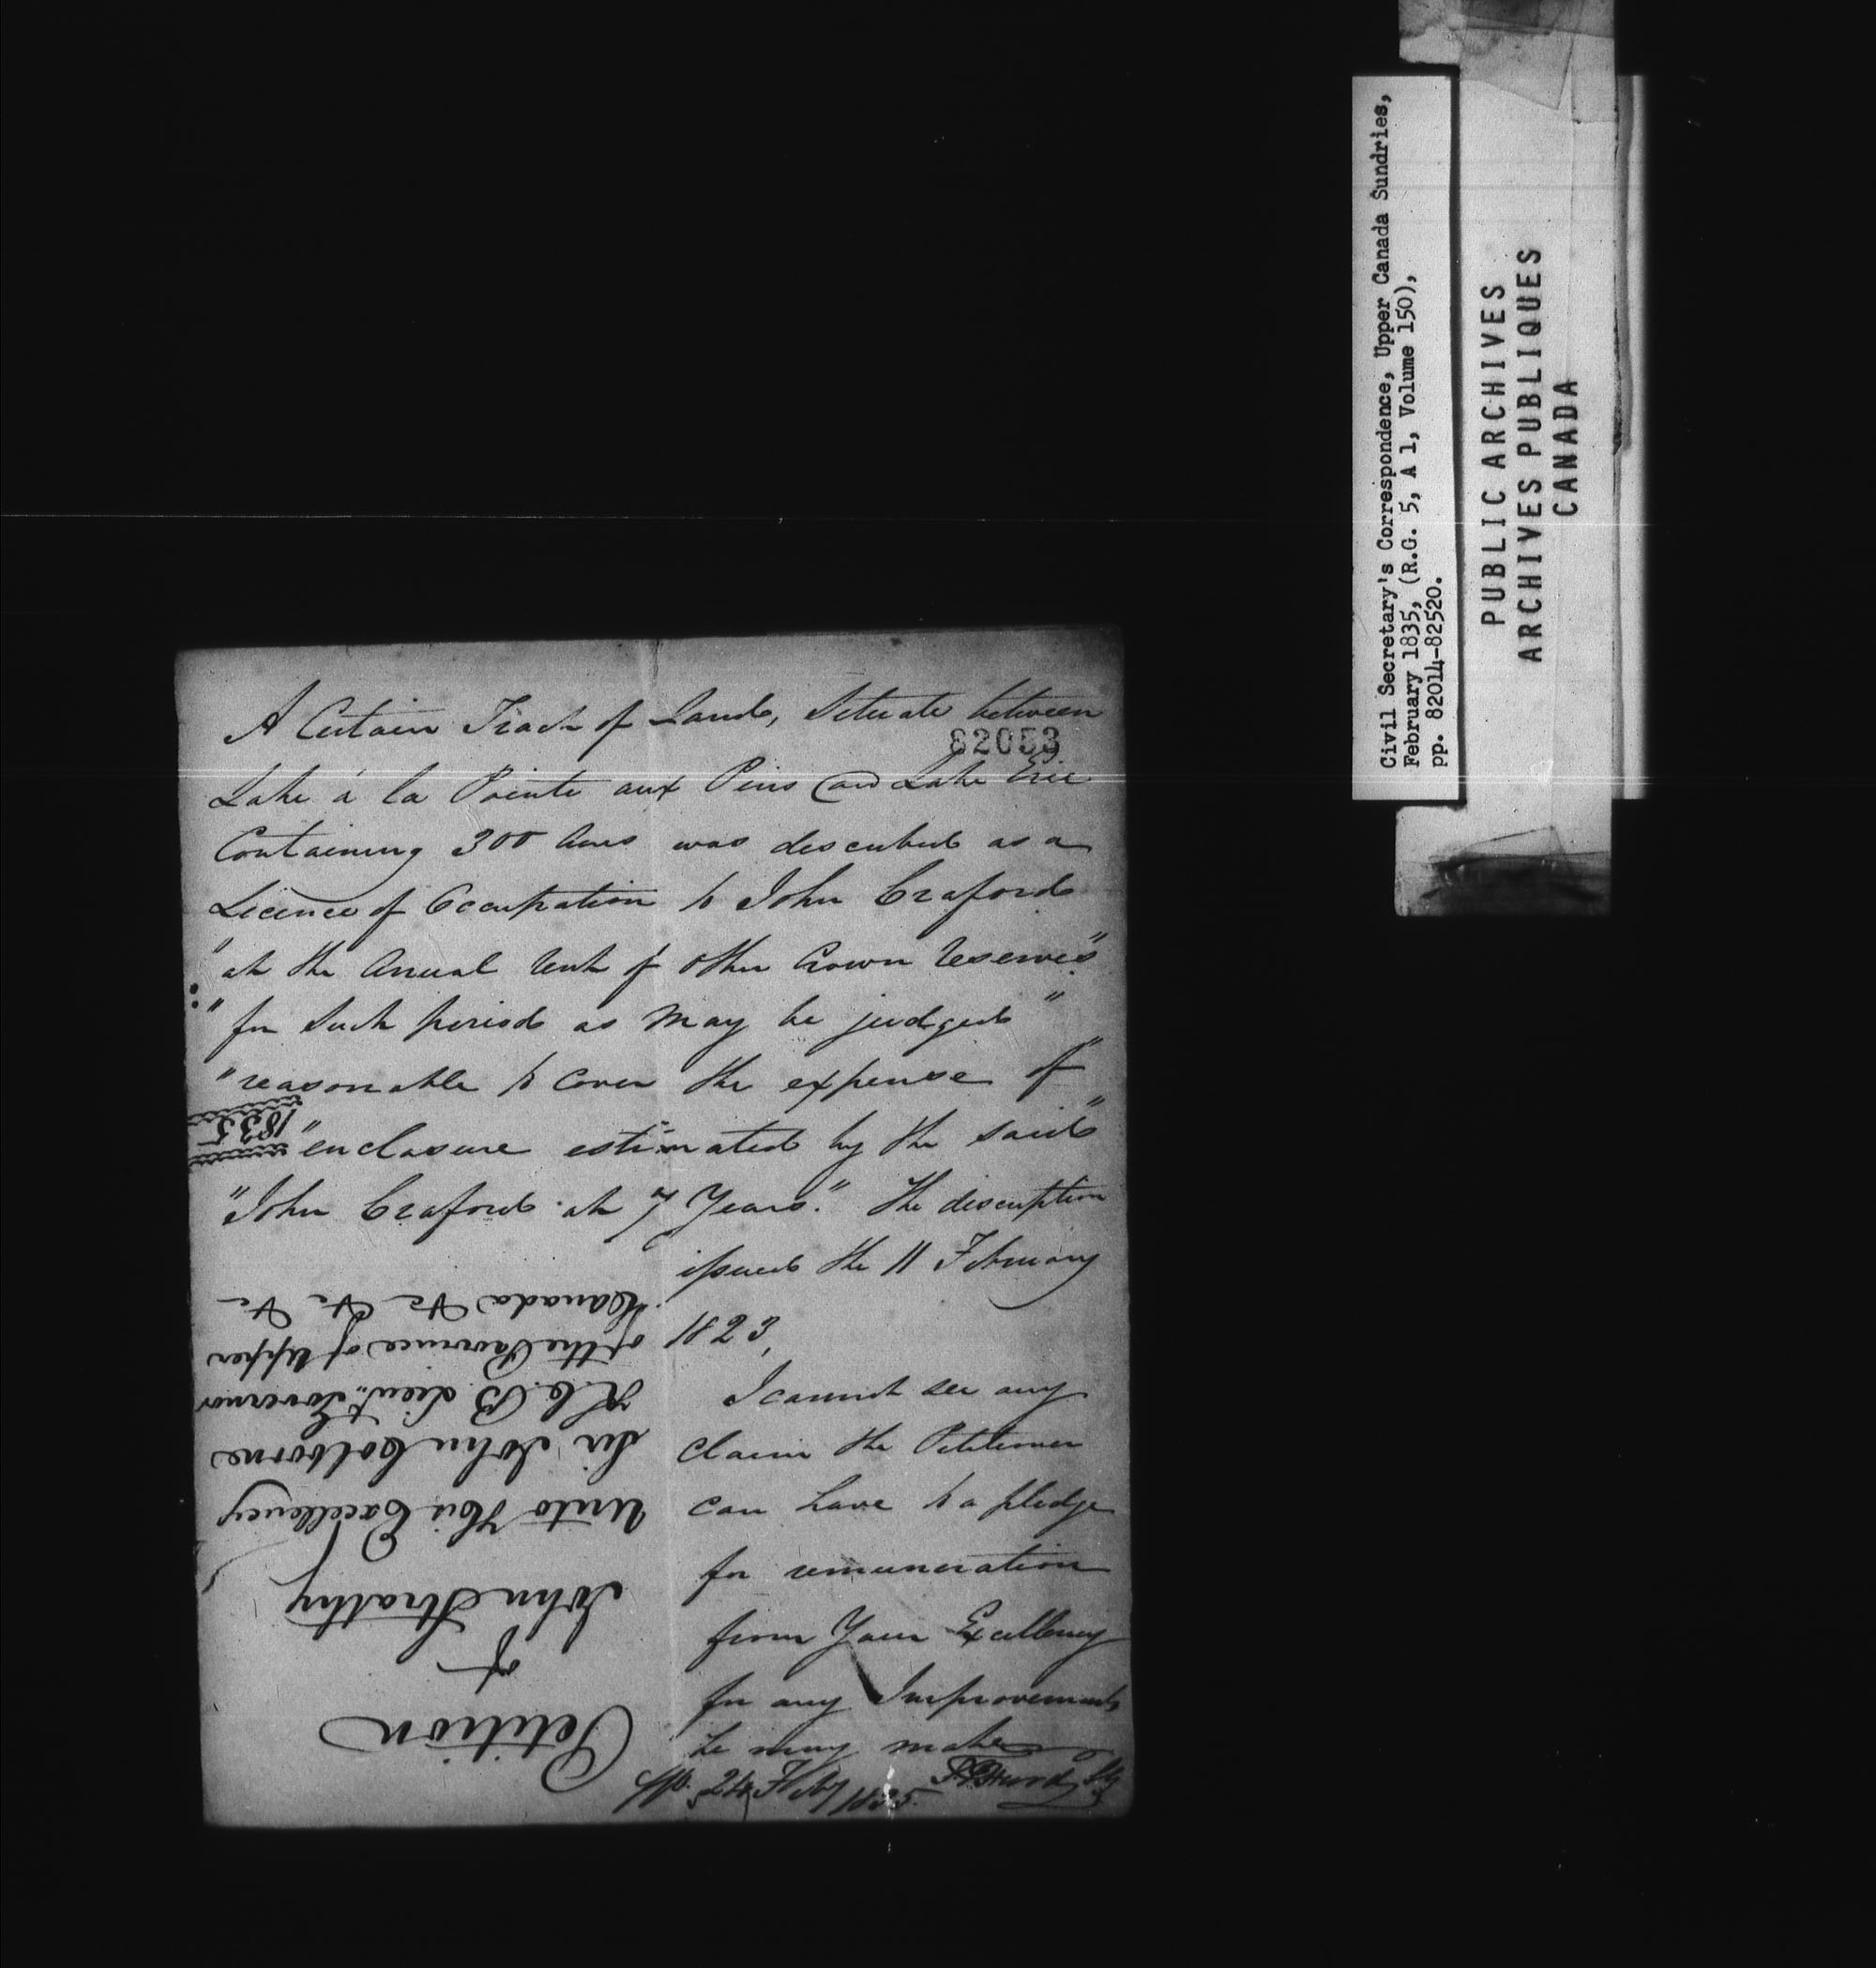 A Certain Tract of Land, Situate between
82053
Lake á la Pointe aux Pins and Lake Erie
Containing 300 Acres was described as a
Licence of Occupation to John Craford
"at the Annual Rent of other Crown Reserves"
"for such period as may be judged"
"reasonable to cover the expense of"
"enclosure estimated by the said"
"John Craford at 7 Years." The description
issued the 11 February
1823,
I cannot see any
claim the Petitioner
can have to a pledge
for remuneration
from Your Excellency
for any Improvements
he may make
24 Feby 1835.
Petition
of
John Strathy
Unto His Excellency
Sir John Colborne
K.C.B. Lieut. Governor
of the Province of Upper
Canada &c &c &c
1835
Civil Secretary's Correspondence, Upper Canada Sundries,
February 1835, (R.G. 5, A 1, Volume 150),
pp. 82014-82520.
PUBLIC ARCHIVES
ARCHIVES PUBLIQUES
CANADA